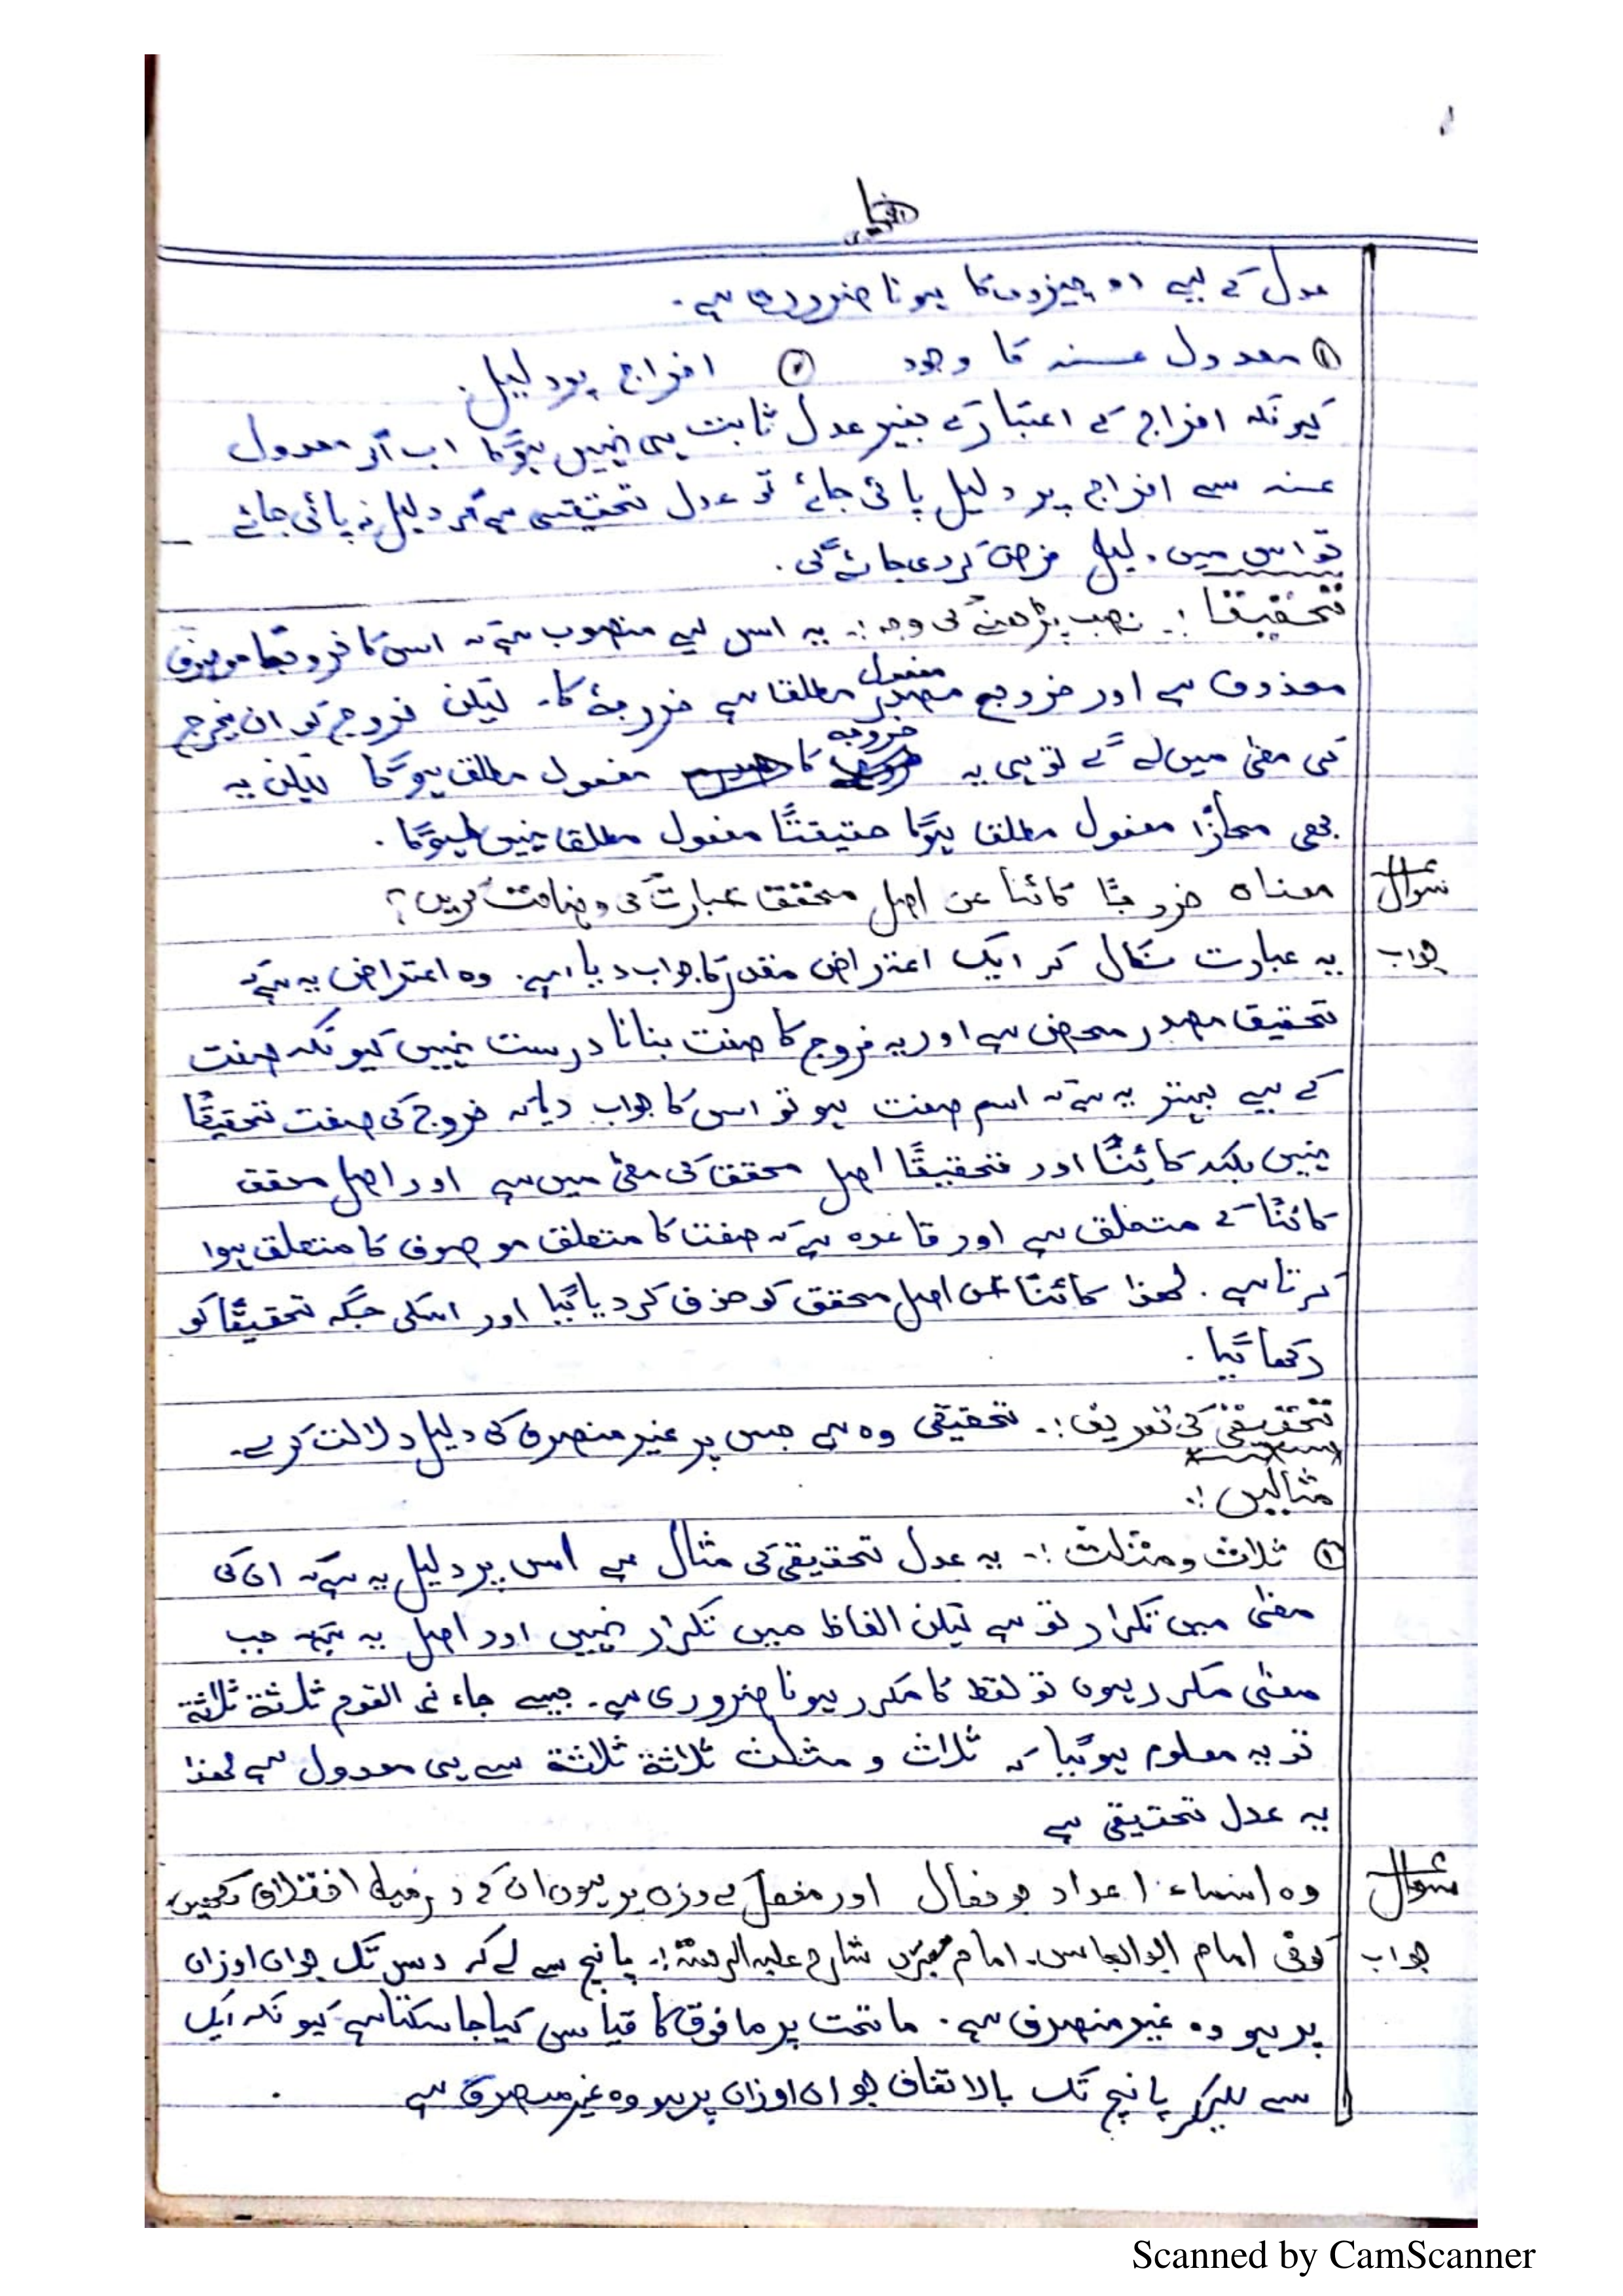 عدل کے لیے دو چیزوں کا ہونا ضروری ہے۔
① معدول عنہ کا وجود ② اخراج پر دلیل۔
کیونکہ اخراج کے اعتبار کے بغیر عدل ثابت ہی نہیں ہوگا اب اگر معدول
عنہ سے اخراج پر دلیل پائی جائے تو عدل تحقیقی ہے اگر دلیل نہ پائی جائے
تو اس میں دلیل فرض کر دی جائے گی۔
تحقیقا :۔ نصب پڑھنے کی وجہ :۔ یہ اس لیے منصوب ہے کہ اس کا خروجًا موصوف
محذوف ہے اور خروج مفعول مطلقا ہے خروجہٗ کا۔ لیکن خروج کو ان یخرج
کی معنیٰ میں لے گے تو ہی یہ خروجہ کا مفعول مطلق ہوگا لیکن یہ
بھی مجازًا مفعول مطلق ہوگا حقیقتًا مفعول مطلق نہیں ہوگا۔
سوال معناہ خروجًا کائنا عن اصل محقق عبارت کی وضاحت کریں؟
جواب یہ عبارت نکال کر ایک اعتراض مقدر کا جواب دیا ہے۔ وہ اعتراض یہ ہے کہ
تحقیق مصدر محض ہے اور یہ خروج کا صفت بنانا درست نہیں کیونکہ صفت
کے لیے بہتر یہ ہے کہ اسم صفت ہو تو اس کا جواب دیا کہ خروج کی صفت تحقیقًا
نہیں بلکہ کائنًا اور تحقیقًا اصل محقق کی معنیٰ میں ہے اور اصل محقق
کائنًا کے متعلق ہے اور قاعدہ ہے کہ صفت کا متعلق موصوف کا متعلق ہوا
کرتا ہے۔ لھذا کائنًا عن اصل محقق کو حذف کر دیا گیا اور اسکی جگہ تحقیقًا کو
رکھا گیا۔
تحقیقی کی تعریف :۔ تحقیقی وہ ہے جس پر غیر منصرف کی دلیل دلالت کرے۔
مثالیں :۔
① ثلاث و مثلث :۔ یہ عدل تحقیقی کی مثال ہے اس پر دلیل یہ ہے کہ ان کی
معنیٰ میں تکرار تو ہے لیکن الفاظ میں تکرار نہیں اور اصل یہ ہے جب
معنیٰ مکرر ہوں تو لفظ کا مکرر ہونا ضروری ہے۔ جیسے جاء نی القوم ثلثۃ ثلاثۃ
تو یہ معلوم ہوگیا کہ ثلاث و مثلث ثلاثۃ ثلاثۃ سے ہی معدول ہے لھذا
یہ عدل تحقیقی ہے
سوال وہ اسماء اعداد جو فعال اور مفعل کے وزن پر ہوں ان کے درمیان اختلاف لکھیں
جواب کوفی امام ابوالعباس۔ امام مبرد شارح علیہ الرحمۃ :۔ پانچ سے لے کر دس تک جو ان اوزان
پر ہو وہ غیر منصرف ہے۔ ماتحت پر مافوق کا قیاس کیا جا سکتا ہے کیونکہ ایک
سے لیکر پانچ تک بالاتفاق جو ان اوزان پر ہو وہ غیر منصرف ہے
Scanned by CamScanner